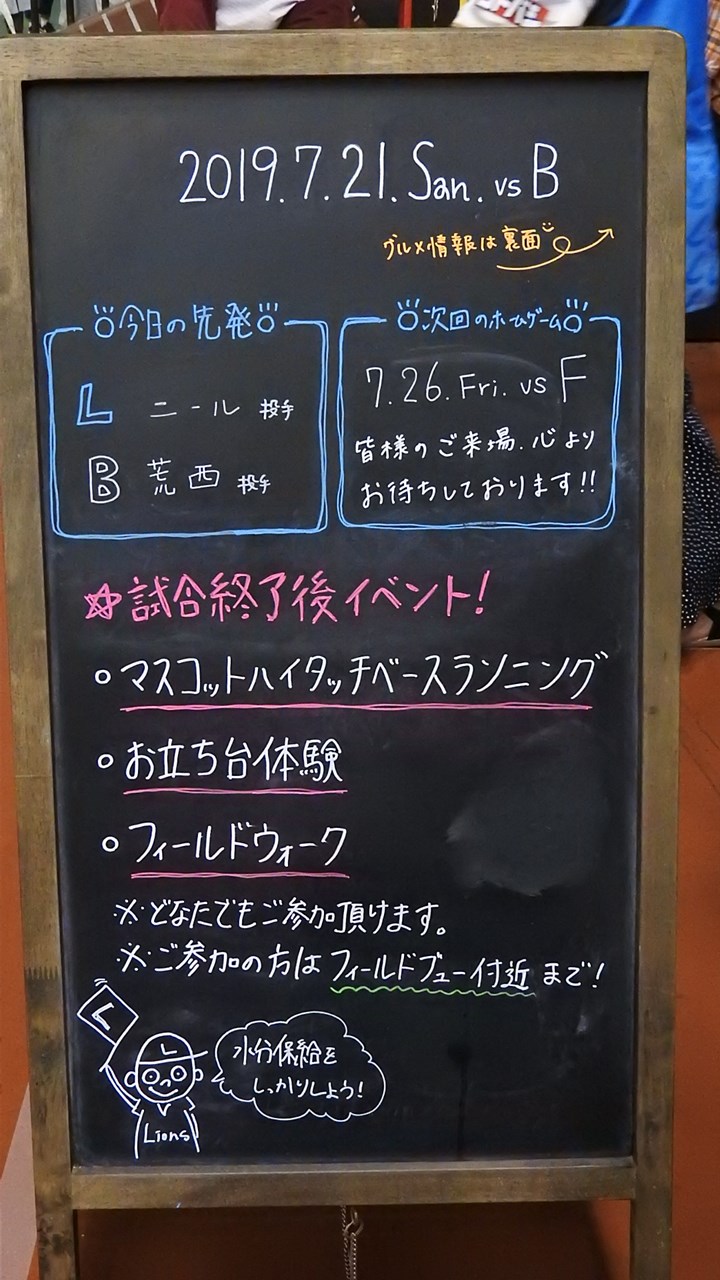 2019.7.21.San. vs B
グルメ情報は裏面
今日の先発
L ニール 投手
B 荒西 投手
次回のホームゲーム
7.26.Fri. vs F
皆様のご来場、心より
お待ちしております!!
☆試合終了後イベント!
○マスコットハイタッチベースランニング
○お立ち台体験
○フィールドウォーク
※どなたでもご参加頂けます。
※ご参加の方はフィールドブュー付近まで!
L
L
Lions
水分保給を
しっかりしよう!